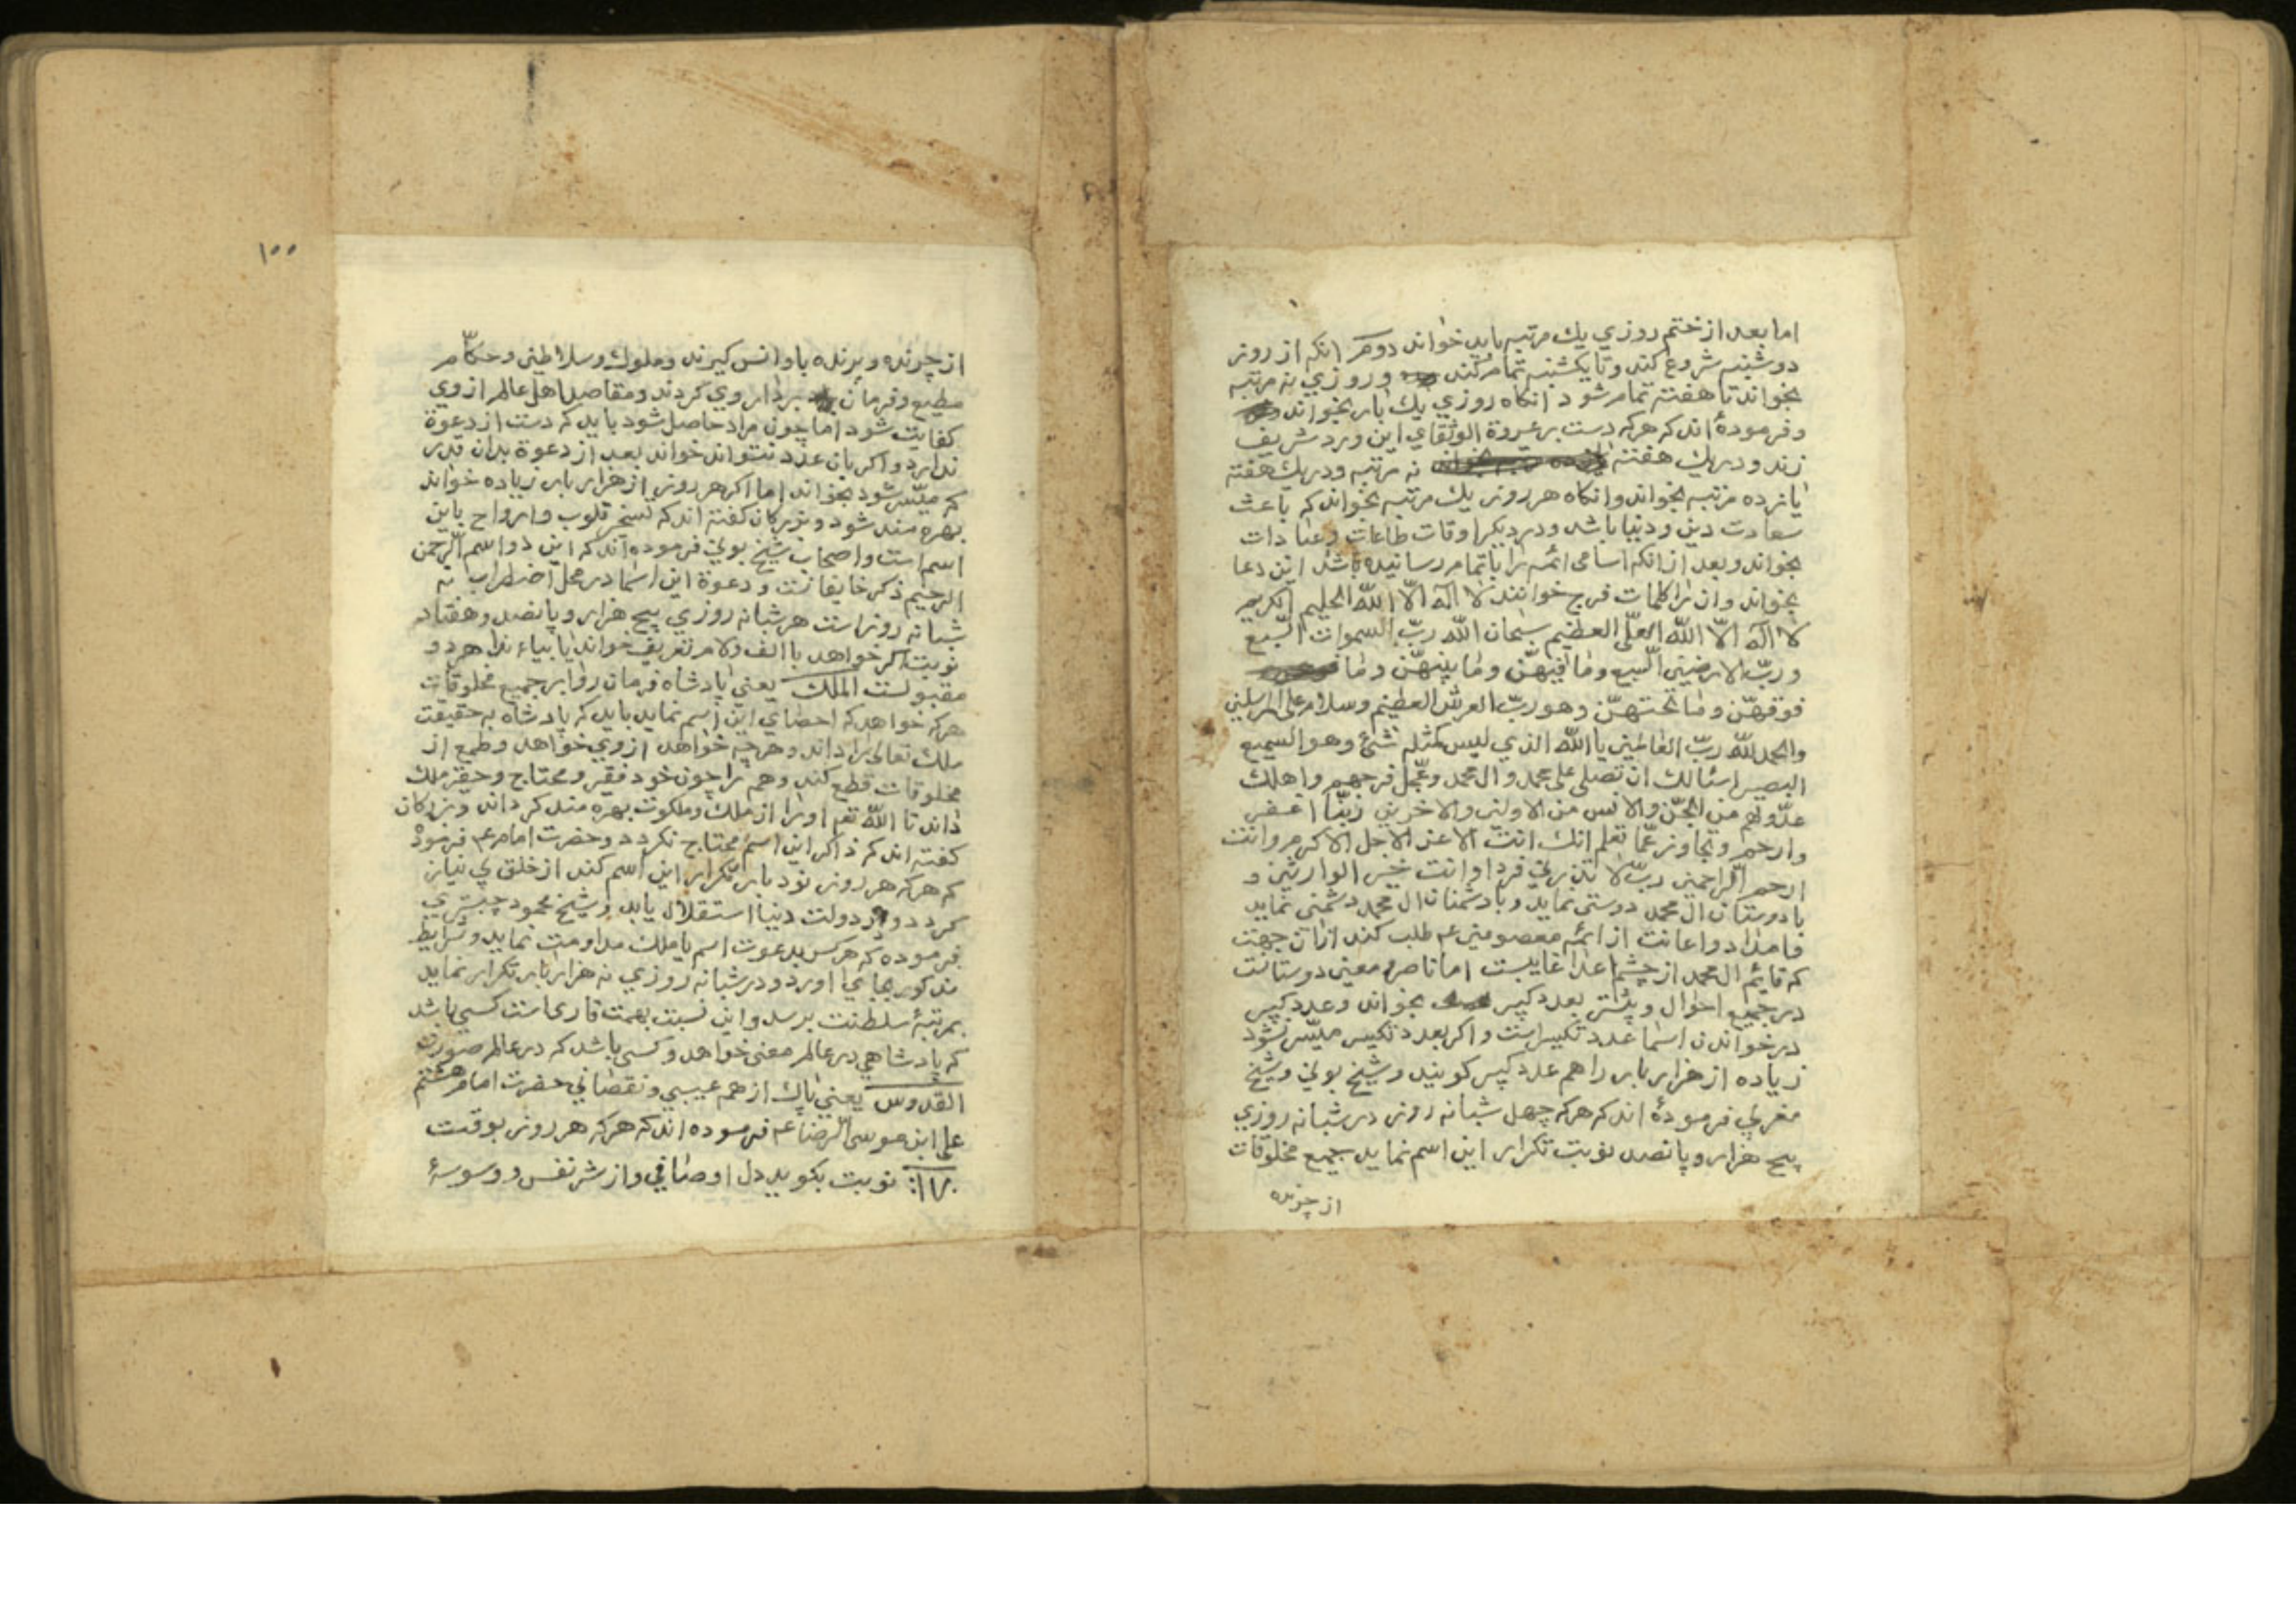 اما بعد از ختم روزي يك مرتبه بايد خواند دوم انكه از روز
دوشنبه شروع كند و تا يكشنبه تمام كند و روزي نه مرتبه
بخواند تا هفته تمام شود انكاه روزي يك بار بخواند
و فرموده‌ٔ اند كه هركه دست بر عروة الوثقاي اين ورد شريف
زند و در يك هفته نه مرتبه و در يك هفته
يانزده مرتبه بخواند وانكاه هر روز يك مرتبه بخواند كه باعث
سعادت دين و دنيا باشد و در ديكر اوقات طاعات و عبادات
بخواند و بعد از انكه اسامى ائمه را باتمام رسانيده باشد اين دعا
بخواند وان را كلمات فرج خوانند لا اله الّا اللّه الحليم الكريم
لا اله الّا اللّه العلّى العظيم سبحان اللّه ربّ السموات السّبع
و ربّ الارضين السّبع وما فيهنّ وما بينهنّ وما
فوقهنّ وما تحتهنّ وهو ربّ العرش العظيم وسلام على المرسلين
والحمد للّه ربّ العالمين يا اللّه الذي ليس كمثله شئ وهو السميع
البصير اسئالك ان تصلى على محمد وال محمد وعجّل فرجهم واهلك
عدّوهم من الجنّ والانس من الاولين والاخرين ربّنا اغفر
وارحم وتجاوز عمّا تعلم انك انت الاعز الاجل الاكرم وانت
ارحم الّراحمين ربّ لا تذرني فردا وانت خير الوارثين و
با دوستان ال محمد دوستى نمايد و با دشمنان ال محمد دشمنى نمايد
فامداد و اعانت از ائمه معصومين عم طلب كند ازان جهت
كه قايم ال محمد از چشم اعدا غايبست اما ناصر و معين دوستانست
در جميع احوال و بعدد كبير بخواند و عدد كبير
در خواندن اسما عدد تكسير است و اكر بعدد تكسير ميسّر نشود
زياده از هزار بار را هم عدد كبير كويند و شيخ بوني و شيخ
مغربي فرموده‌ٔ اند كه هركه چهل شبانه روز در شبانه روزي
پنج هزار و پانصد نوبت تكرار اين اسم نمايد جميع مخلوقات
از چرنده
١٠٠
از چرنده و پرنده با او انس كيرند و ملوك و سلاطين و حكّام
مطيع و فرمان بردار وي كردند و مقاصد اهل عالم از وي
كفايت شود اما چون مراد حاصل شود بايد كه دست از دعوة
ندارد و اكر بان عدد نتواند خواند بعد از دعوة بدان قدر
كه ميسّر شود بخواند اما اكر هر روز از هزار بار زياده خواند
بهره مند شود و بزركان كفته اند كه تسخير قلوب و ارواح باين
اسم است و اصحاب شيخ بوني فرموده اند كه اين دو اسم الّرحمن
الرحيم ذكر خايفانست و دعوة اين اسما در محل اضطراب نه
شبانه روز است هر شبانه روزي پنج هزار و پانصد و هفتاد
نوبت اكر خواهد با الف ولام تعريف خواند يا بياء ندا هر دو
مقبولست الملك يعني پادشاه فرمان روا بر جميع مخلوقات
هركه خواهد كه احصاي اين اسم نمايد بايد كه پادشاه به حقيقت
ملك تعالى را داند و هرچه خواهد از وي خواهد و طمع از
مخلوقات قطع كند و همه را چون خود فقير و محتاج و حقير ملك
داند تا اللّه تعم او را از ملك و ملكوت بهره مند كرداند و بزركان
كفته اند كه ذاكر اين اسم محتاج نكردد و حضرت امام عم فرمود
كه هركه هر روز نود بار تكرار اين اسم كند از خلق بي نياز
كردد و در دولت دنيا استقلال يابد و شيخ محمود جبستري
فرموده كه هر كس بدعوت اسم يا ملك مداومت نمايد و شرايط
مذكور بجاي اورد و در شبانه روزي نه هزار بار تكرار نمايد
بمرتبهٔ سلطنت برسد و اين نسبت بهمت قارى است كسى باشد
كه پادشاهي در عالم معنى خواهد و كسى باشد كه در عالم صورت
القدوس يعني پاك از همه عيبي و نقصاني حضرت امام هشتم
على ابن موسى الّرضا عم فرموده اند كه هركه هر روز بوقت
نوبت بكويد دل او صافي و از شر نفس و وسوسهٔ